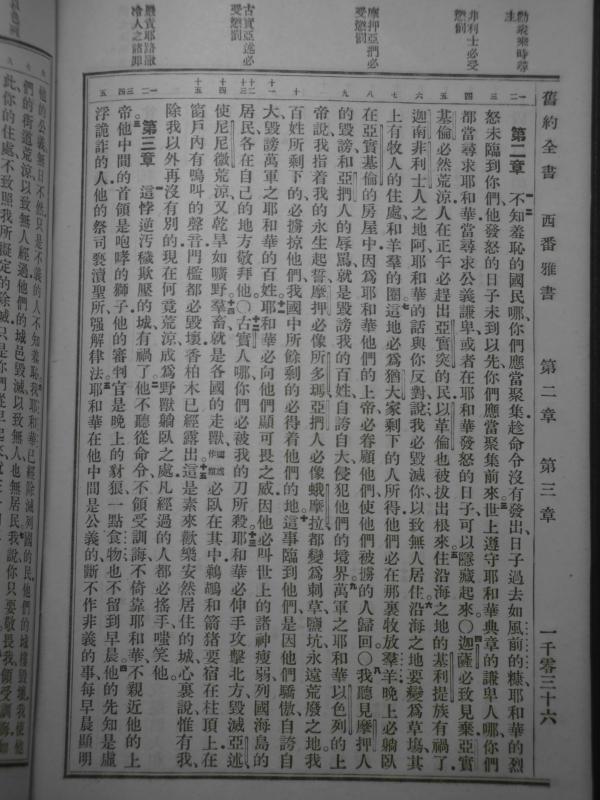 舊約全書 西番雅書 第二章 第三章 一千零三十六
勸衆乘時尋
主
非利士必受
懲罰
摩押亞捫必
受懲罰
古實亞述必
受懲罰
嚴責耶路撒
冷人之諸罪
第二章 不知羞恥的國民哪、你們應當聚集、趁命令沒有發出、日子過去如風前的糠、耶和華的烈
怒未臨到你們、他發怒的日子未到以先、你們應當聚集前來。世上遵守耶和華典章的謙卑人哪、你們
都當尋求耶和華、當尋求公義謙卑、或者在耶和華發怒的日子、可以隱藏起來。〇迦薩必致見棄、亞實
基倫必然荒涼、人在正午必趕出亞實突的民、以革倫也被拔出根來。住沿海之地的基利提族有禍了、
迦南非利士人之地阿、耶和華的話與你反對、說、我必毀滅你、以致無人居住。沿海之地要變爲草場、其
上有牧人的住處、和羊羣的圈。這地必爲猶大家剩下的人所得、他們必在那裏牧放羣羊、晚上必躺臥
在亞實基倫的房屋中、因爲耶和華他們的上帝、必眷顧他們、使他們被擄的人歸回。〇我聽見摩押人
的毀謗、和亞捫人的辱罵、就是毀謗我的百姓、自誇自大、侵犯他們的境界。萬軍之耶和華以色列的上
帝說、我指着我的永生起誓、摩押必像所多瑪、亞捫人必像蛾摩拉、都變爲刺草、鹽坑、永遠荒廢之地、我
百姓所剩下的、必擄掠他們、我國中所餘剩的、必得着他們的地。這事臨到他們、是因他們驕傲自誇自
大、毀謗萬軍之耶和華的百姓。耶和華必向他們顯可畏之威、因他必叫世上的諸神瘦弱、列國海島的
居民、各在自己的地方敬拜他。〇古實人哪、你們必被我的刀所殺。耶和華必伸手攻擊北方、毀滅亞述、
使尼尼微荒涼、又乾旱如曠野。羣畜、就是各國的走獸、必臥在其中、鵜鶘和箭猪要宿在柱頂上、在
窗戶內有鳴叫的聲音、門檻都必毀壞、香柏木已經露出。這是素來歡樂安然居住的城、心裏說、惟有我、
除我以外再沒有別的、現在何竟荒涼、成爲野獸躺臥之處、凡經過的人都必搖手嗤笑他。
第三章 這悖逆汚穢欺壓的城有禍了。他不聽從命令、不領受訓誨、不倚靠耶和華、不親近他的上
帝。他中間的首領、是咆哮的獅子、他的審判官、是晚上的豺狼、一點食物也不留到早晨。他的先知是虛
浮詭詐的人、他的祭司褻瀆聖所、强解律法。耶和華在他中間是公義的、斷不作非義的事、每早晨顯明